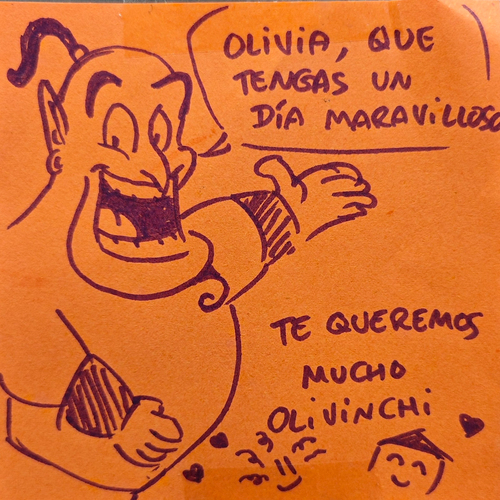 OLIVIA, QUE
TENGAS UN
DÍA MARAVILLOSO
TE QUEREMOS
MUCHO
OLIVINCHI